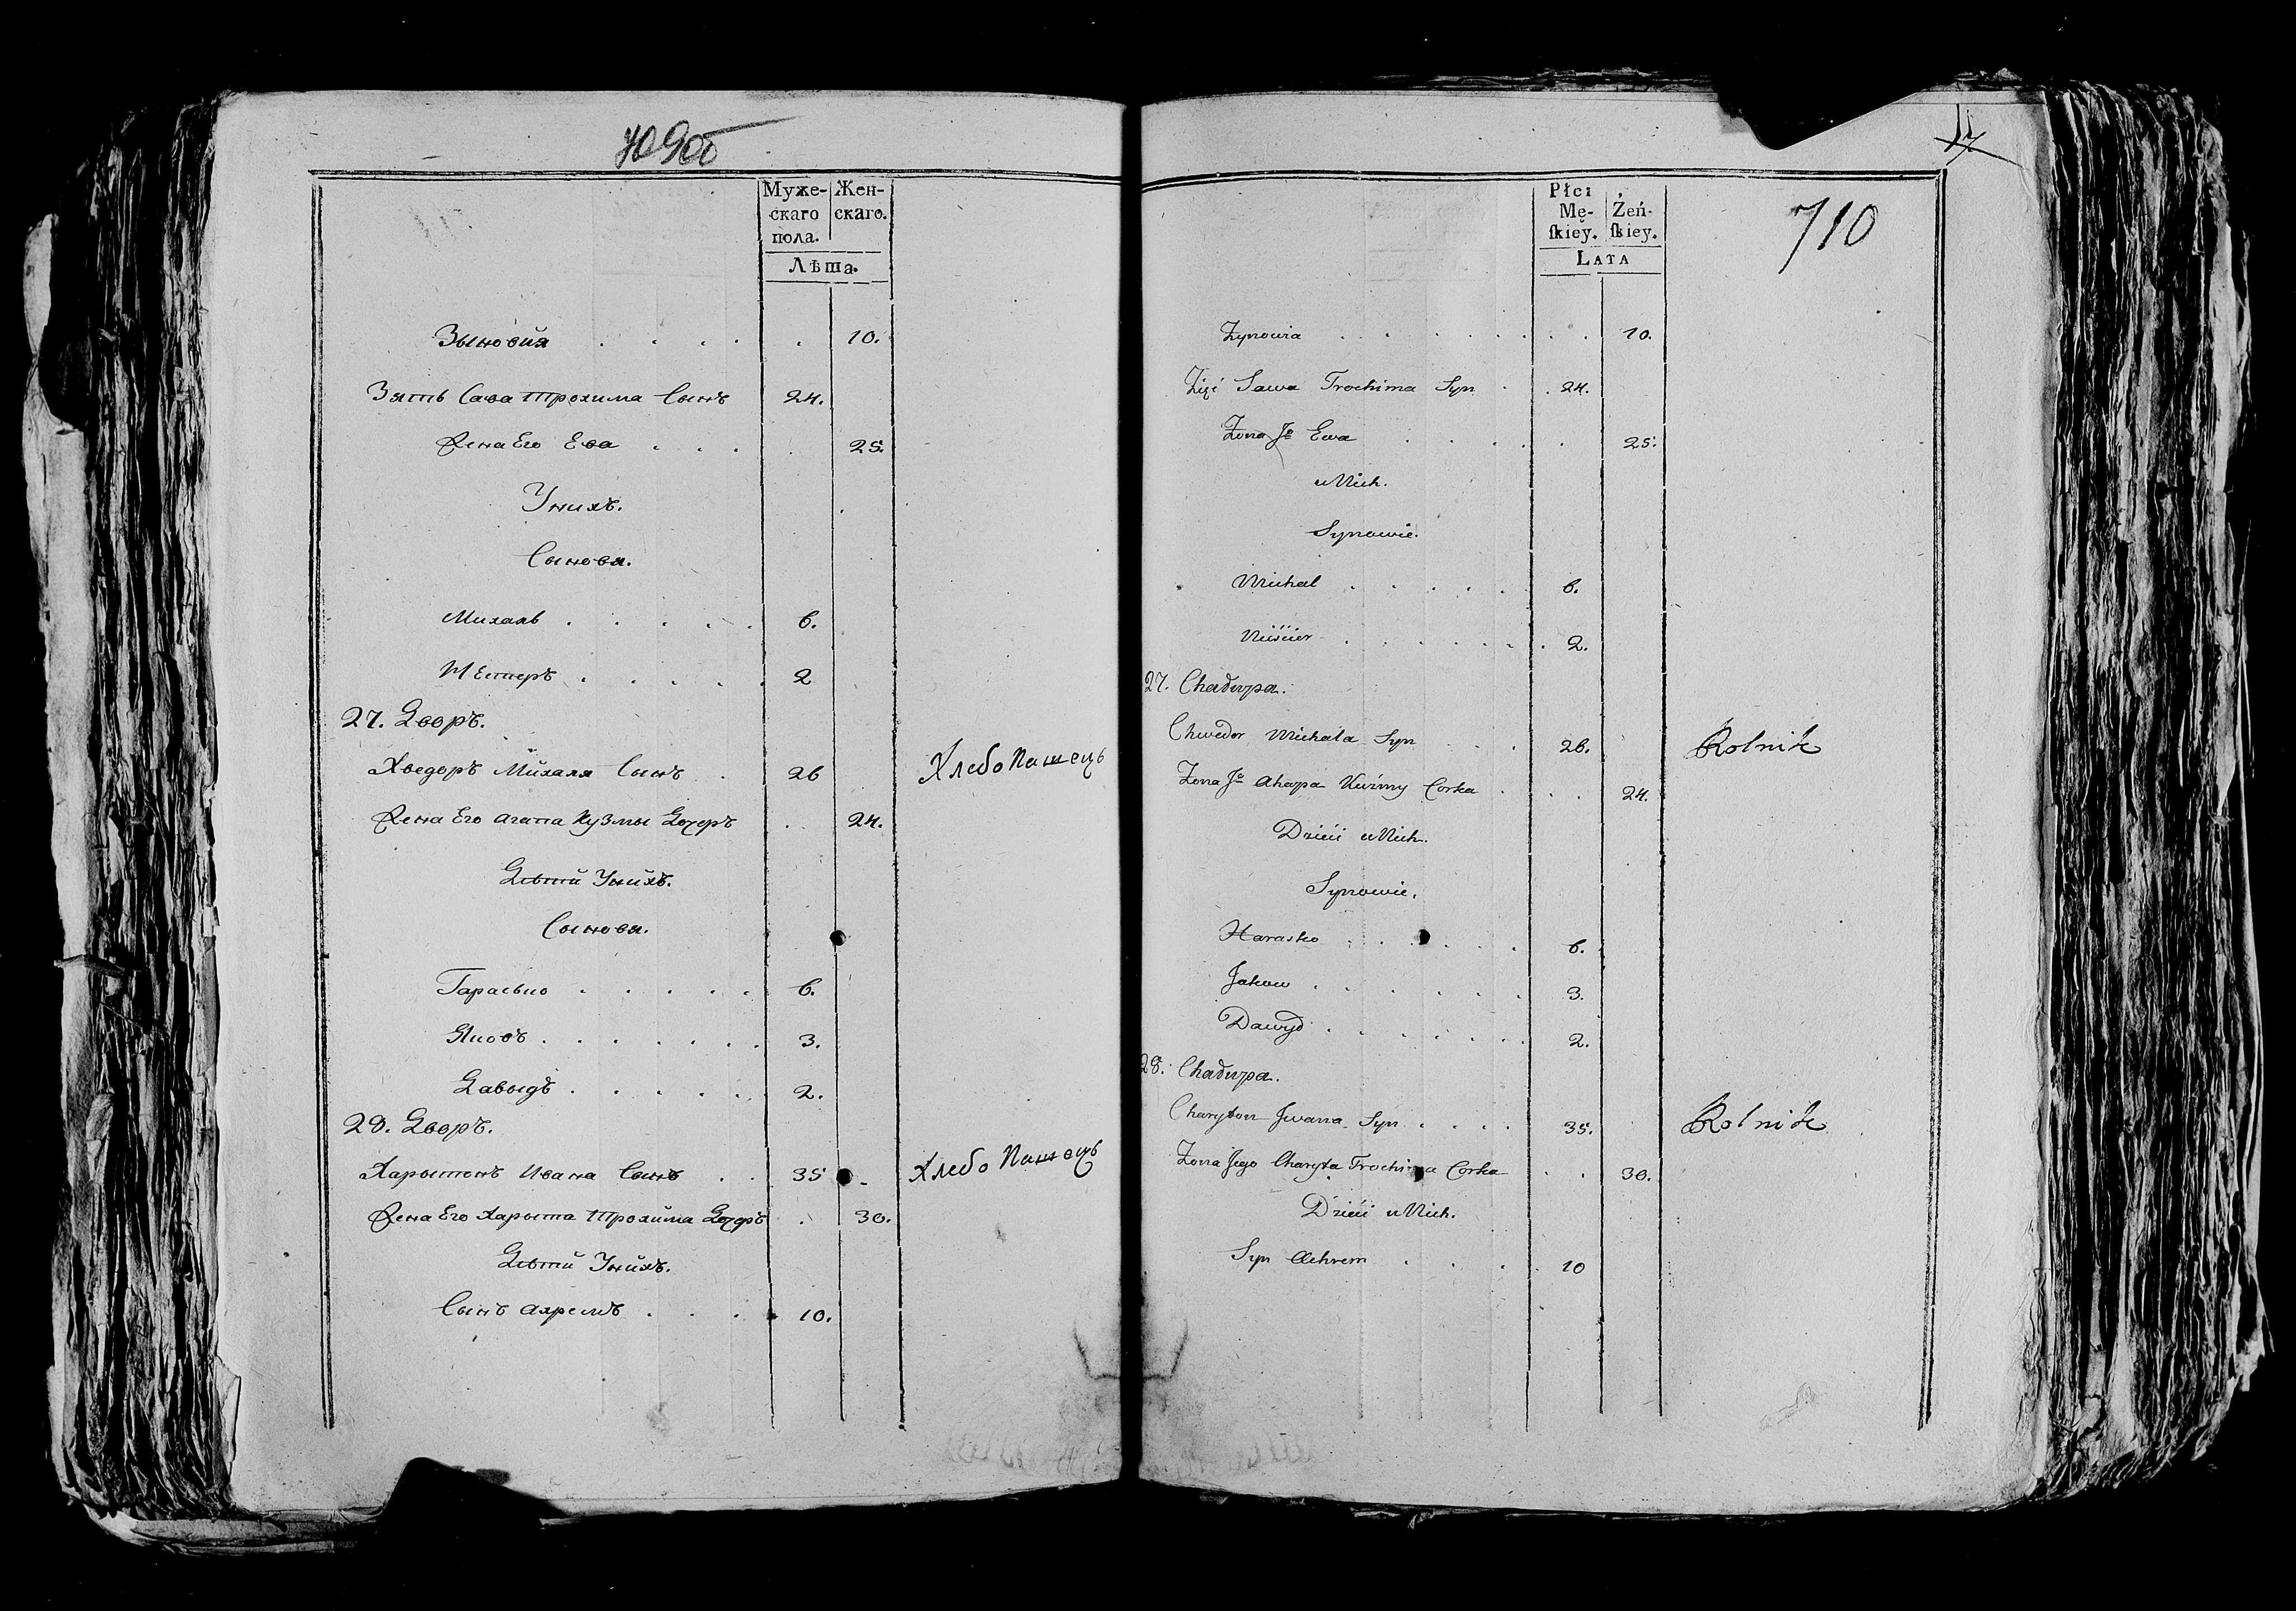 709об
Муже-
скаго
пола.
Жен-
скаго.
Лѣта.
Зыновия . . . . . 10.
Зять Сава Трохима Сынъ 24.
Жена Его Ева . . . . 25.
У нихъ.
Сыновя.
Михаль . . . . . 6.
Нестеръ . . . . . 2
27. Дворъ.
Хведоръ Михаля Сынъ . 26 Хлебо Пашецъ
Жена Его Агапа Кузмы Дочеръ . 24.
Дѣти У нихъ.
Сыновя.
Гарасько . . . . . 6.
Яковъ . . . . . . . 3.
Давыдъ . . . . . . 2.
28. Дворъ.
Харытонъ Ивана Сынъ . . 35 Хлебо Пашецъ
Жена Его Харыта Трохима Дочеръ . 30.
Дѣти У нихъ.
Сынъ Ахремъ . . . 10.
17
710
Płci
Mę-
ſkiey.
Żeń-
ſkiey.
LATA
Zynowia . . . . . . . . 10.
Zięć Sawa Trochima Syn . . 24.
Zona Jo Ewa . . . . . 25.
u Nich.
Synowie.
Michal . . . . . . 6.
. . . . . . . 2.
27. Chałupa.
Chwedor Michala Syn . . . 26. Rolnik
Zona Jo Ahapa Kuźmy Corka . . . 24.
Dzieci u Nich.
Synowie.
Harasko . . . . . . 6.
Jakow . . . . . . 3.
Dawyd . . . . . . 2.
28. Chałupa.
Charyton Jwana Syn . . . . 35. Rolnik
Zona Jego Charyta Trochima Corka . . 30.
Dzieci u Nich.
Syn Achrem . . . . 10